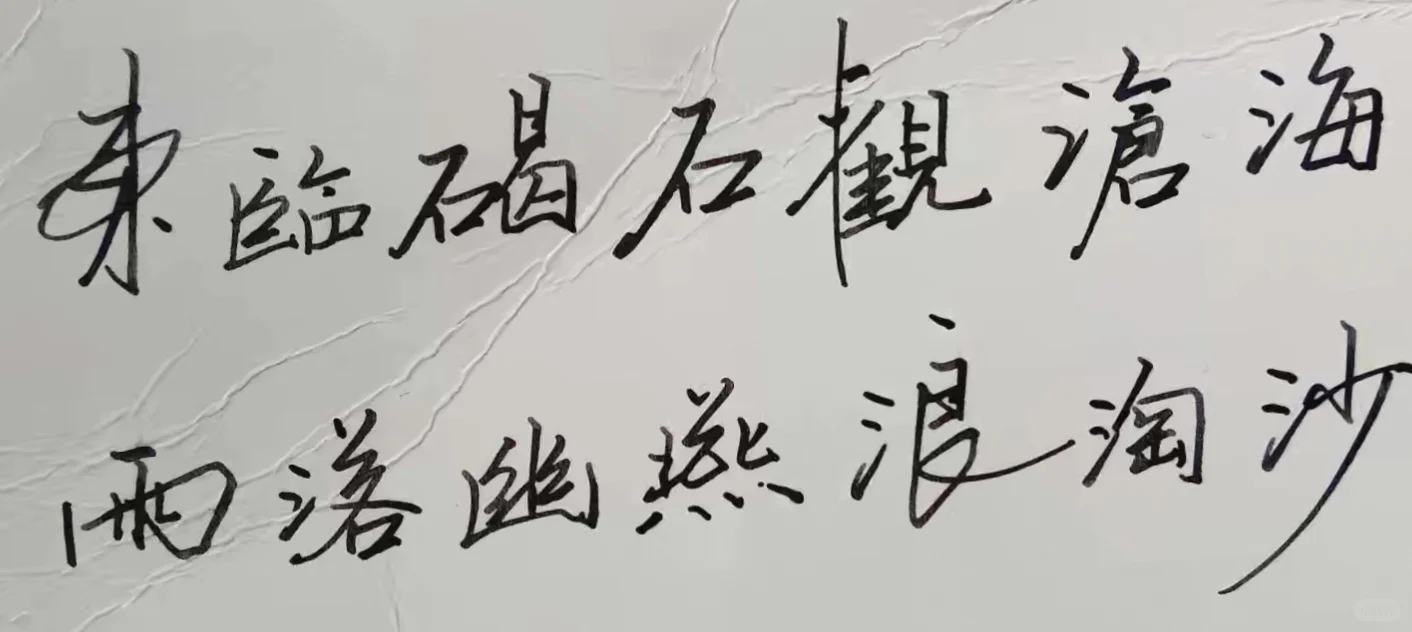 東臨碣石觀滄海
雨落幽燕浪淘沙